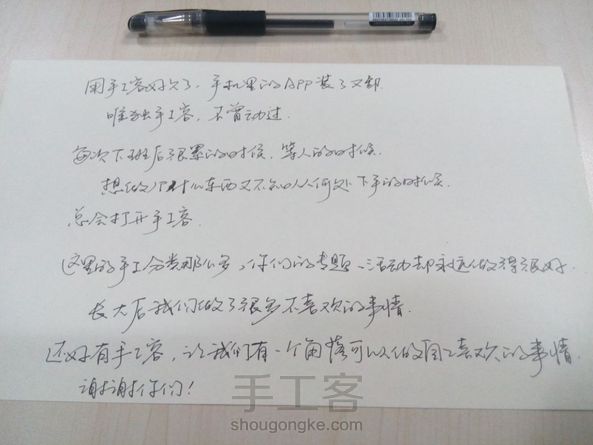 用手工客好久了，手机里的APP装了又卸
唯独手工客，不曾动过.
每次下班后很累的时候，等人的时候.
想做个什么东西又不知从何处下手的时候.
总会打开手工客.
这里的手工分类那么多，你们的专题、活动却永远做得很好.
长大后我们做了很多不喜欢的事情.
还好有手工客，让我们有一个角落可以做自己喜欢的事情.
谢谢你们！
手工客
shougongke.com